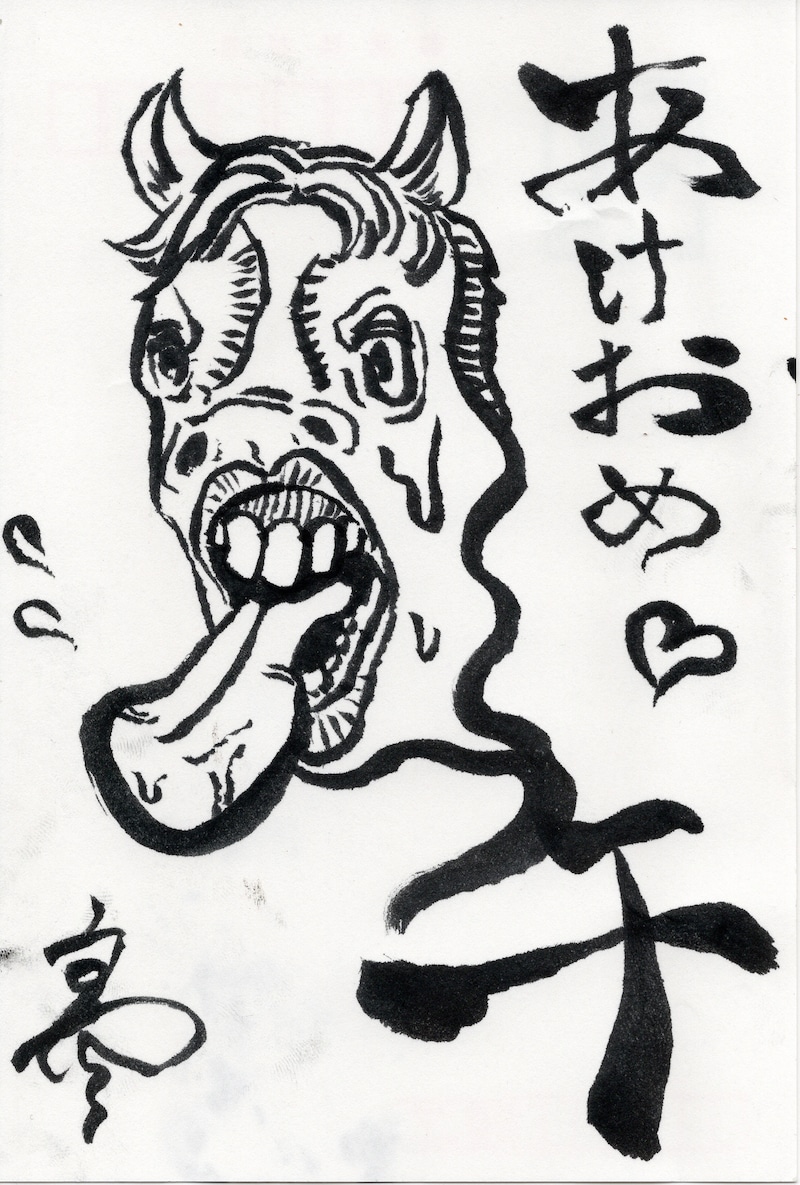 あけおめ♡
午